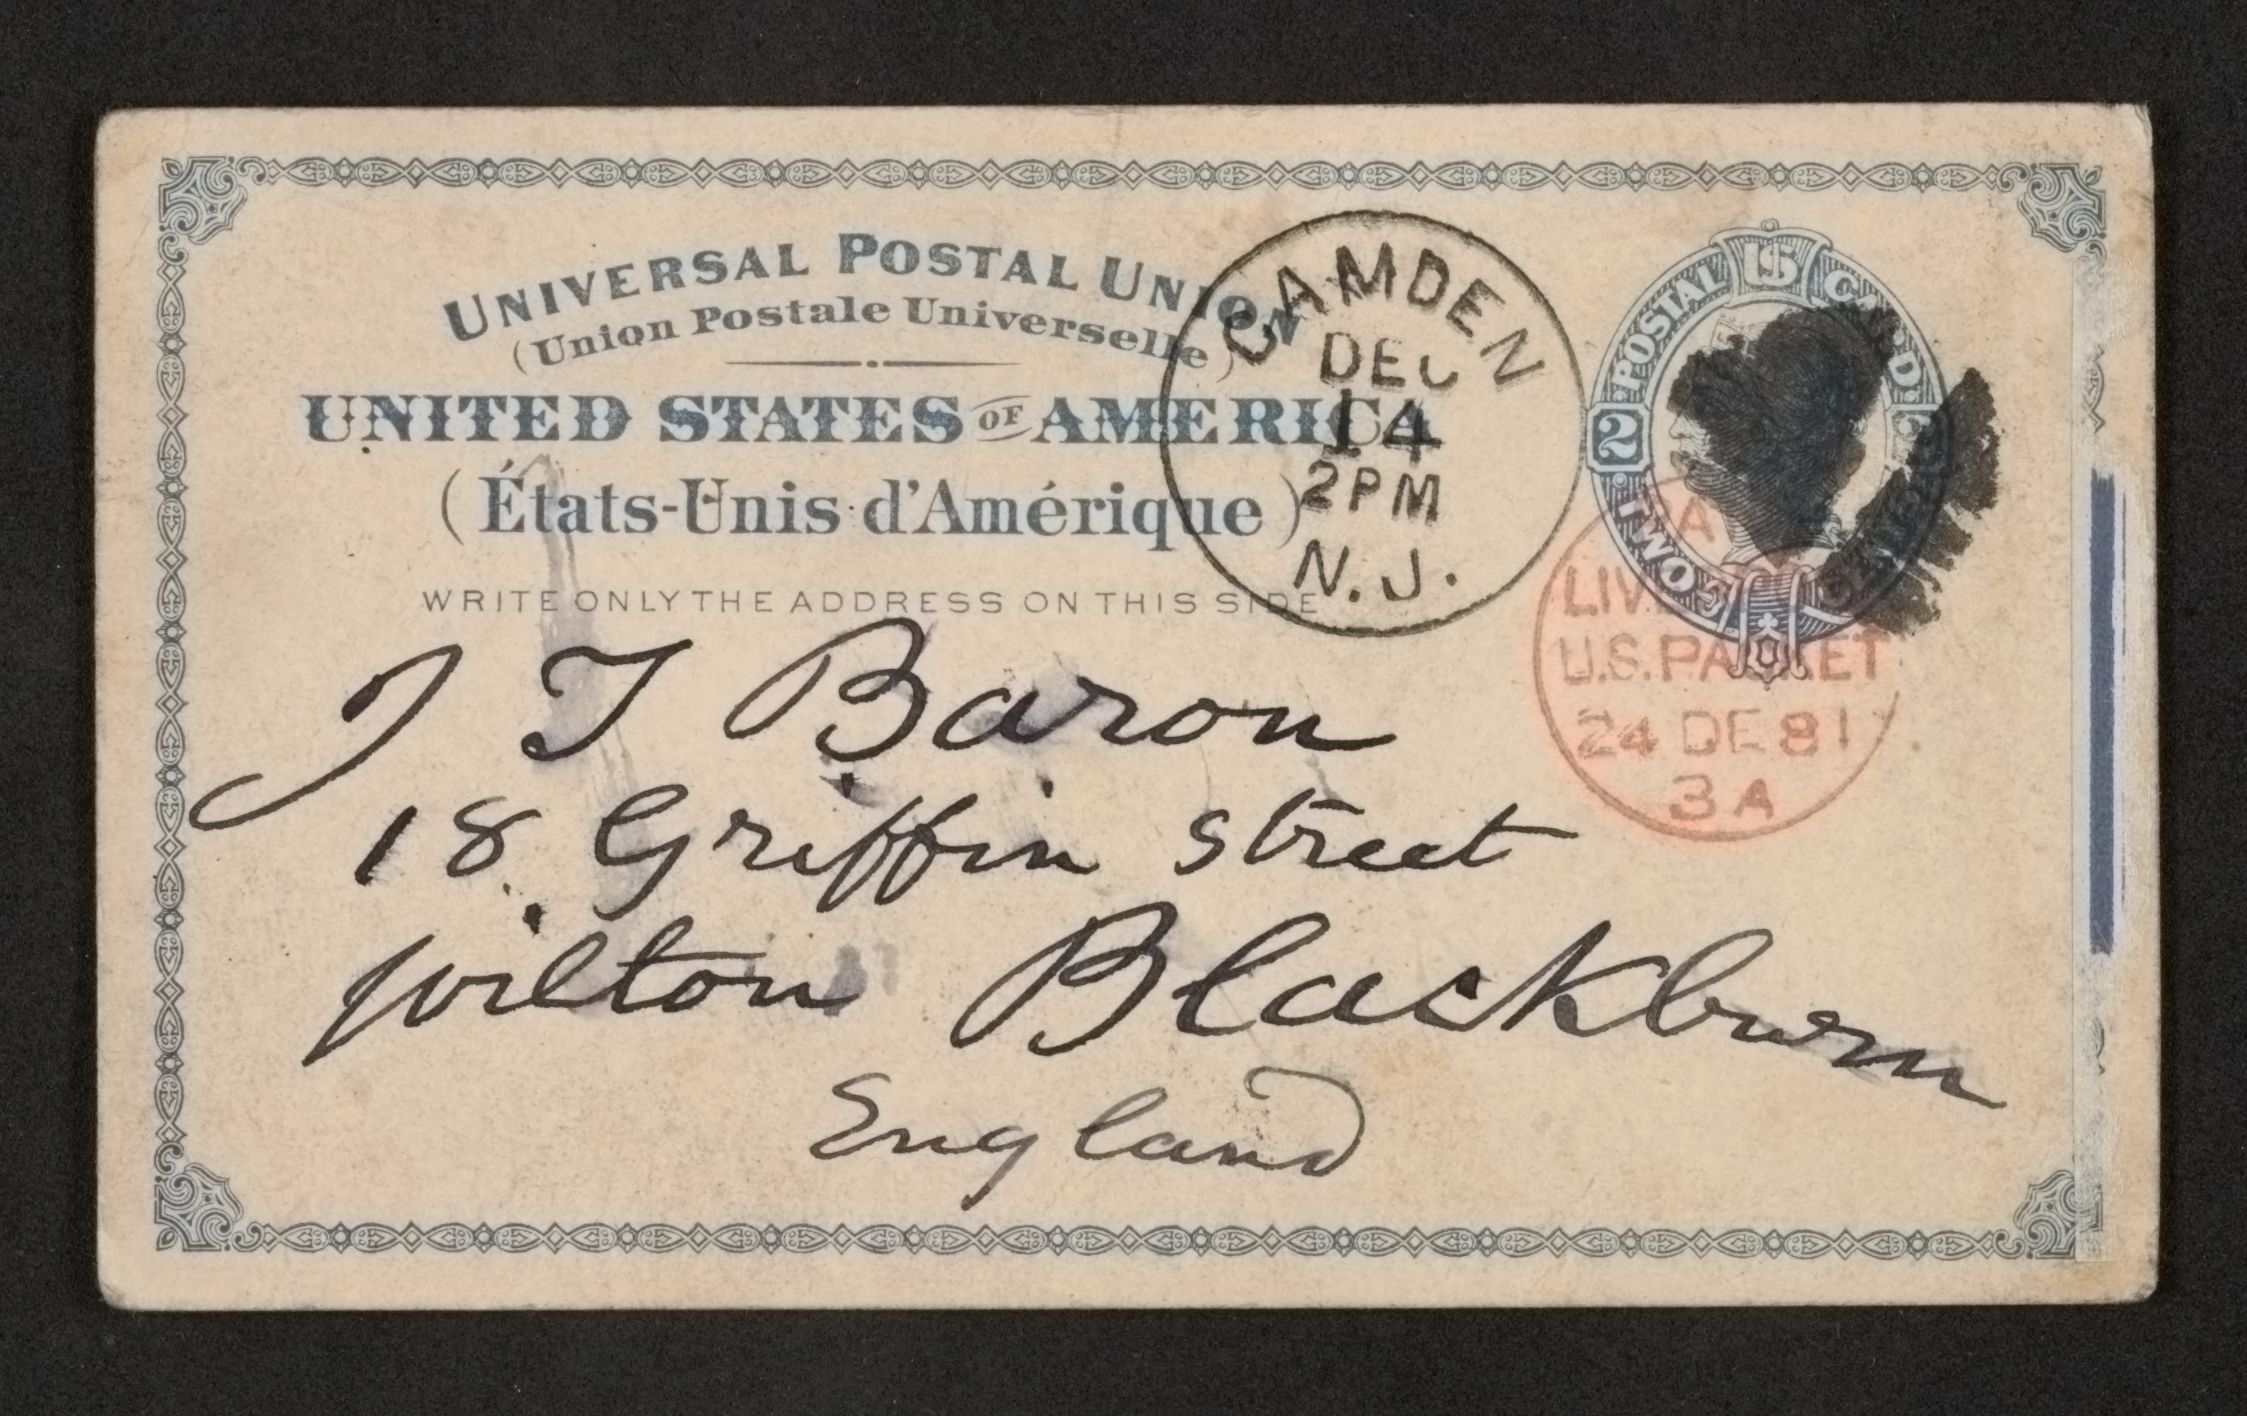 UNIVERSAL POSTAL UNION
(Union Postale Universelle)
UNITED STATES OF AMERICA
(États-Unis d'Amérique)
WRITE ONLY THE ADDRESS ON THIS SIDE
CAMDEN
DEC
14
2PM
N.J.
U.S. POSTAL CARD.
2
TWO CENTS
U.S. PACKET
24 DE 81
3A
J T Baron
18 Griffin street
Wilton Blackburn
England